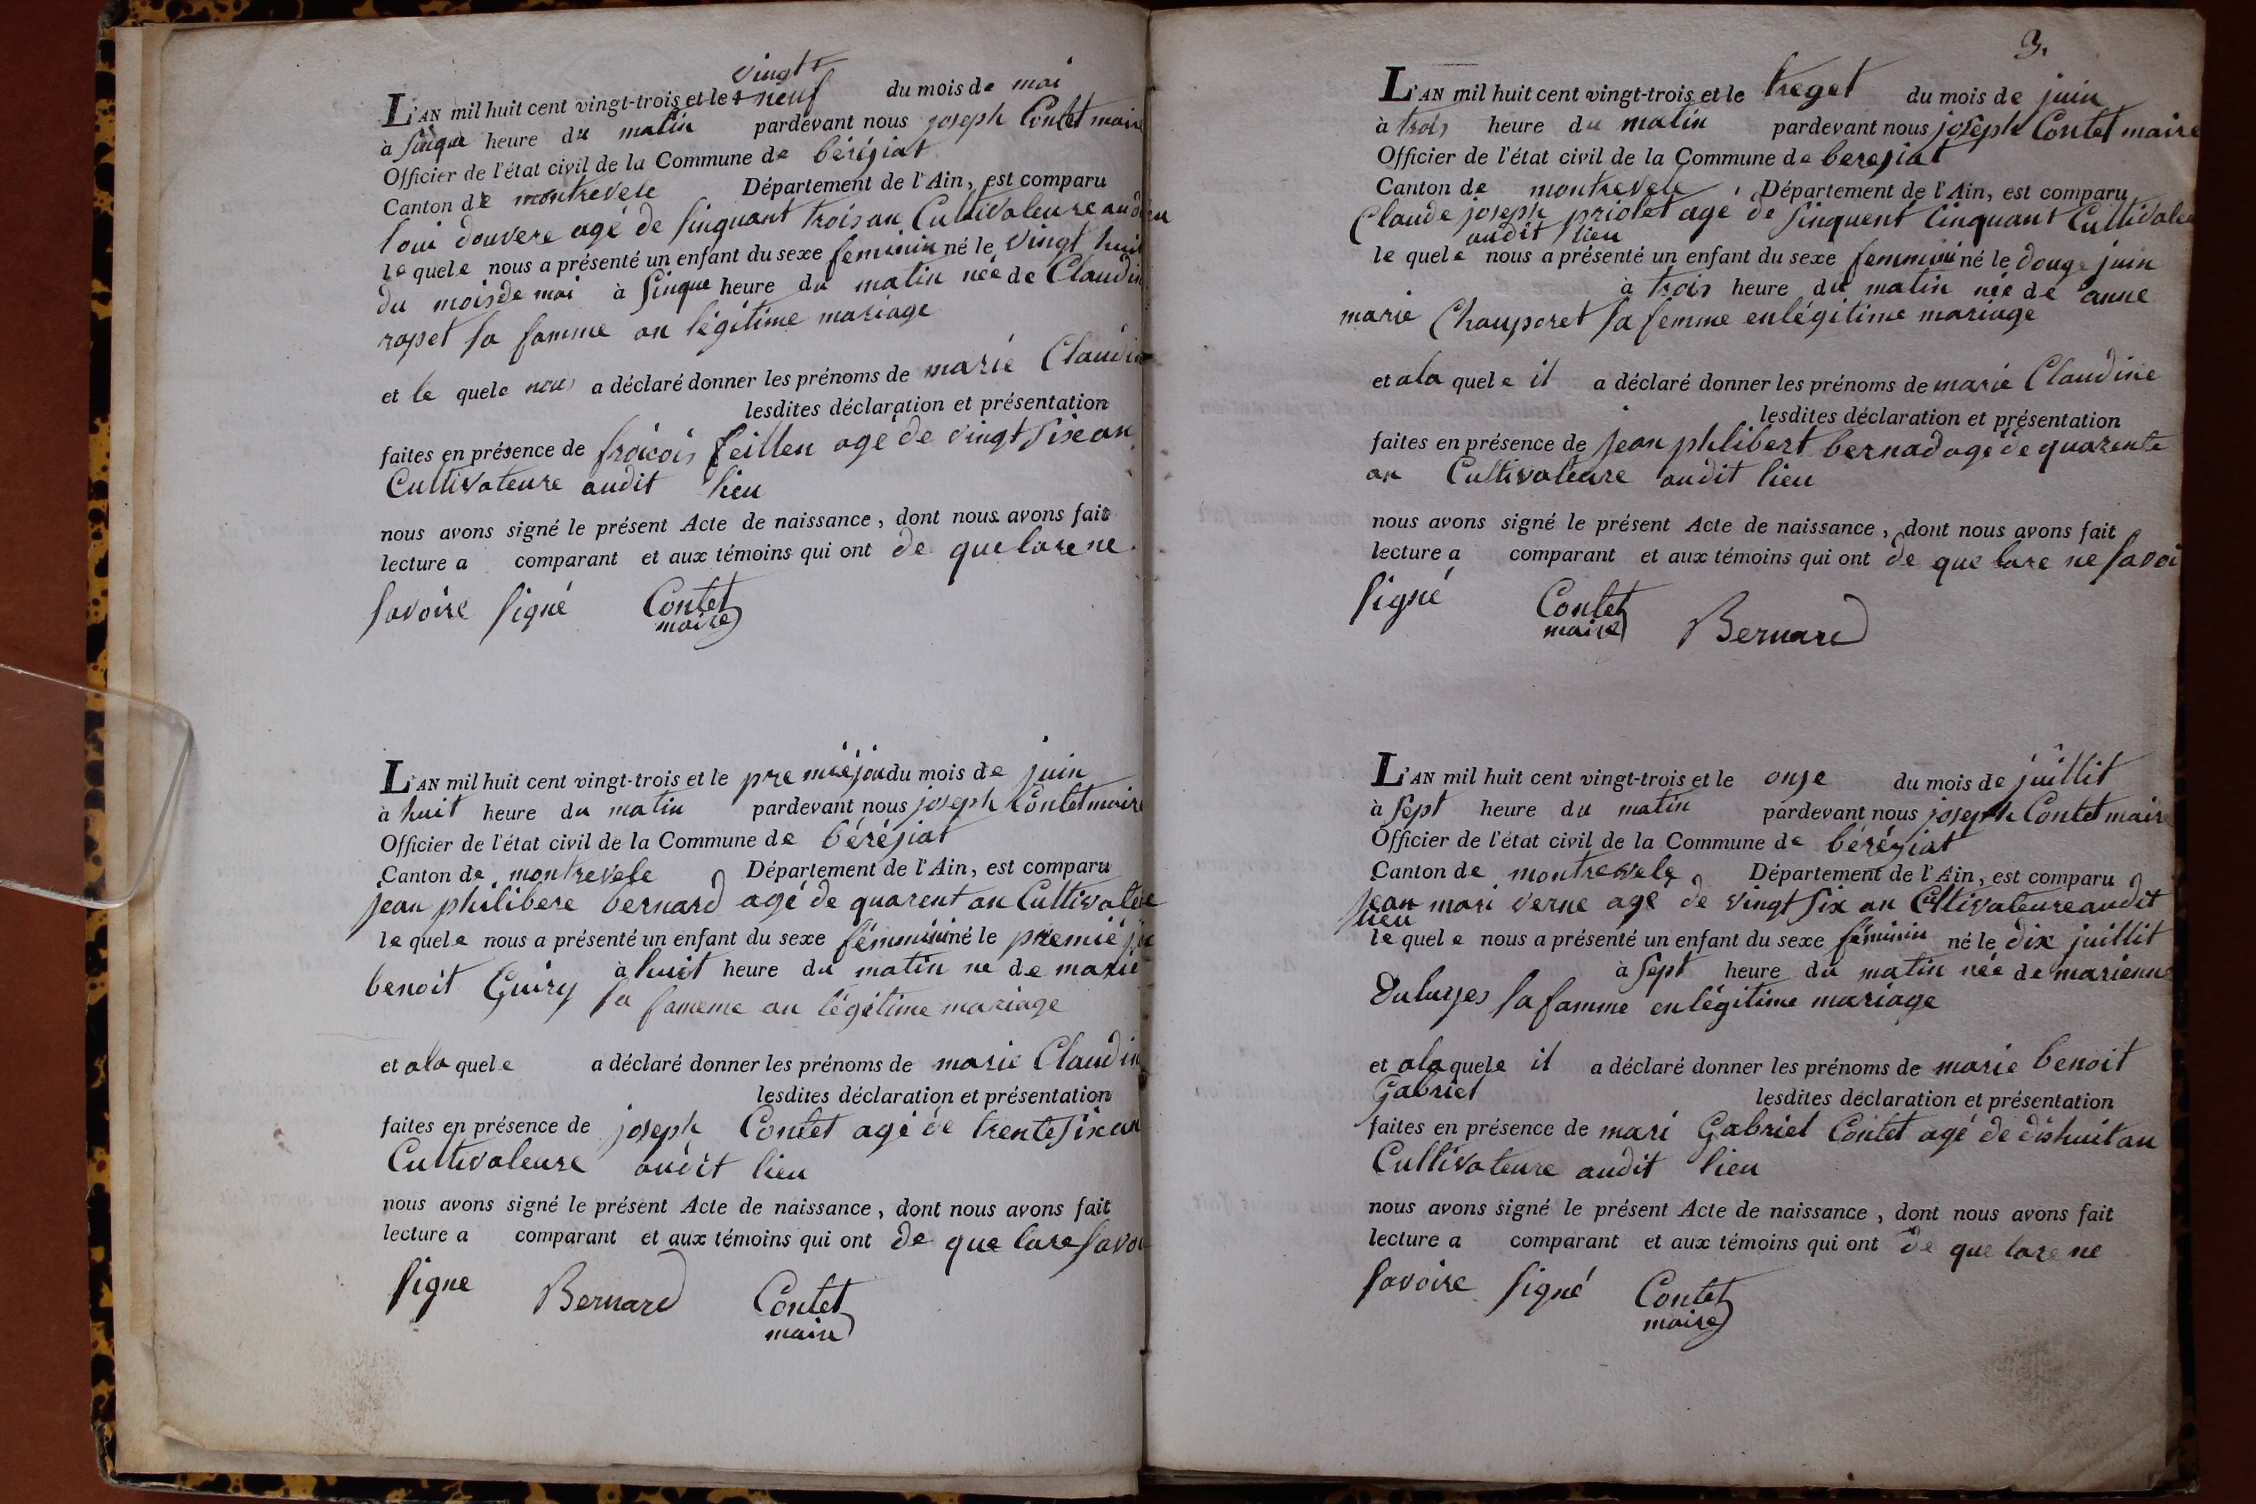 vingt
L'AN mil huit cent vingt-trois et le neuf du mois de mai
à sinque heure du matin pardevant nous joseph Contet maire
Officier de l'état civil de la Commune de béréjiat
Canton de montrevele Département de l'Ain, est comparu
loui douvere agé de sinquant trois an Cultivateure audi lieu
le quele nous a présenté un enfant du sexe feminin né le vingt huit
du mois de mai à sinque heure du matin née de Claudine
rapet sa famme an légitime mariage
et le quele nous a déclaré donner les prénoms de marie Claudine
lesdites déclaration et présentation
faites en présence de froicois feillen agé de vingt sixe an
Cultivateure audit lieu
nous avons signé le présent Acte de naissance, dont nous avons fait
lecture a comparant et aux témoins qui ont de que lare ne
savoire signé Contet
maire
L'AN mil huit cent vingt-trois et le premiéjou du mois de juin
à huit heure du matin pardevant nous joseph Contet maire
Officier de l'état civil de la Commune de béréjiat
Canton de montrevele Département de l'Ain, est comparu
jean philibere bernard agé de quarent an Cultivateure
le quele nous a présenté un enfant du sexe femminin né le premié
à huit heure du matin né de marie
benoit Guiry sa famme an légitime mariage
et ala quele a déclaré donner les prénoms de marie Claudin
lesdites déclaration et présentation
faites en présence de joseph Contet agé de trente six an
Cultivateure audit lieu
nous avons signé le présent Acte de naissance, dont nous avons fait
lecture a comparant et aux témoins qui ont de que lare savoi
signe Bernard Contet
maire
3.
L'AN mil huit cent vingt-trois et le treget du mois de juin
à trois heure du matin pardevant nous joseph Contet maire
Officier de l'état civil de la Commune de berejiat
Canton de montrevele Département de l'Ain, est comparu
Claude joseph priolet agé de sinquent Cinquant Cultivate
audit lieu
le quele nous a présenté un enfant du sexe femminin né le douge juin
à trois heure du matin née de anne
marie Chauporet sa femme en légitime mariage
et ala quele il a déclaré donner les prénoms de marie Claudine
lesdites déclaration et présentation
faites en présence de jean philibert bernad agé de quarente
an Cultivateure audit lieu
nous avons signé le présent Acte de naissance, dont nous avons fait
lecture a comparant et aux témoins qui ont de que lare ne savoi
signé Contet
maire Bernard
L'AN mil huit cent vingt-trois et le onje du mois de juillit
à sept heure du matin pardevant nous joseph Contet maire
Officier de l'état civil de la Commune de béréjiat
Canton de montrevele Département de l'Ain, est comparu
jean mari verne agé de vingt six an Cultivateure audit
lieu
le quele nous a présenté un enfant du sexe féminin né le dix juillit
à sept heure du matin née de marienne
Duluyes sa famme en légitime mariage
et ala quele il a déclaré donner les prénoms de marie benoit
Gabriel lesdites déclaration et présentation
faites en présence de mari Gabriel Contet agé de dishuit an
Cultivateure audit lieu
nous avons signé le présent Acte de naissance, dont nous avons fait
lecture a comparant et aux témoins qui ont de que lare ne
savoire signé Contet
maire